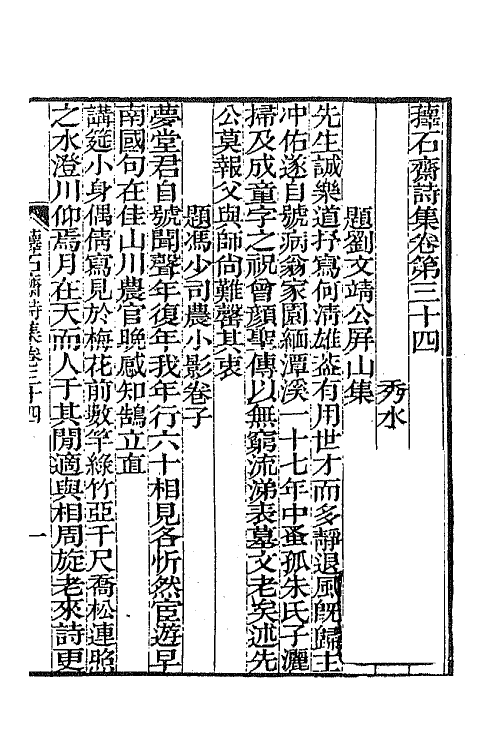 蘀石齋詩集卷第三十四
秀水
題劉文靖公屏山集
先生誠樂道抒寫何淸雄蓋有用世才而多靜退風旣歸主
冲佑遂自號病翁家園緬潭溪一十七年中蚤孤朱氏子灑
掃及成童字之祝曾顏聖傳以無窮流涕表墓文老矣述先
公莫報父與師尙難罄其衷
題馮少司農小影卷子
夢堂君自號聞聲年復年我年行六十相見各忻然宦遊早
南國句在佳山川農官晚感知鵠立直
講筵小身偶倩寫見於梅花前數竿綠竹亞千尺喬松連照
之水澄川仰焉月在天而人于其閒適與相周旋老來詩更
蘀石齋詩集卷三十四
一